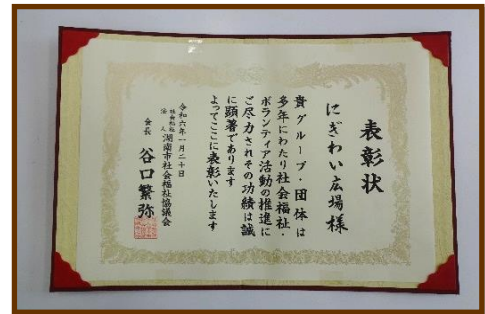 表彰状
にぎわい広場様
貴グループ・団体は
多年にわたり社会福祉・
ボランティア活動の推進に
ご尽力されその功績は誠
に顕著であります
よってここに表彰いたします
令和六年一月二十日
社会福祉法人 湖南市社会福祉協議会
会長 谷口繁弥